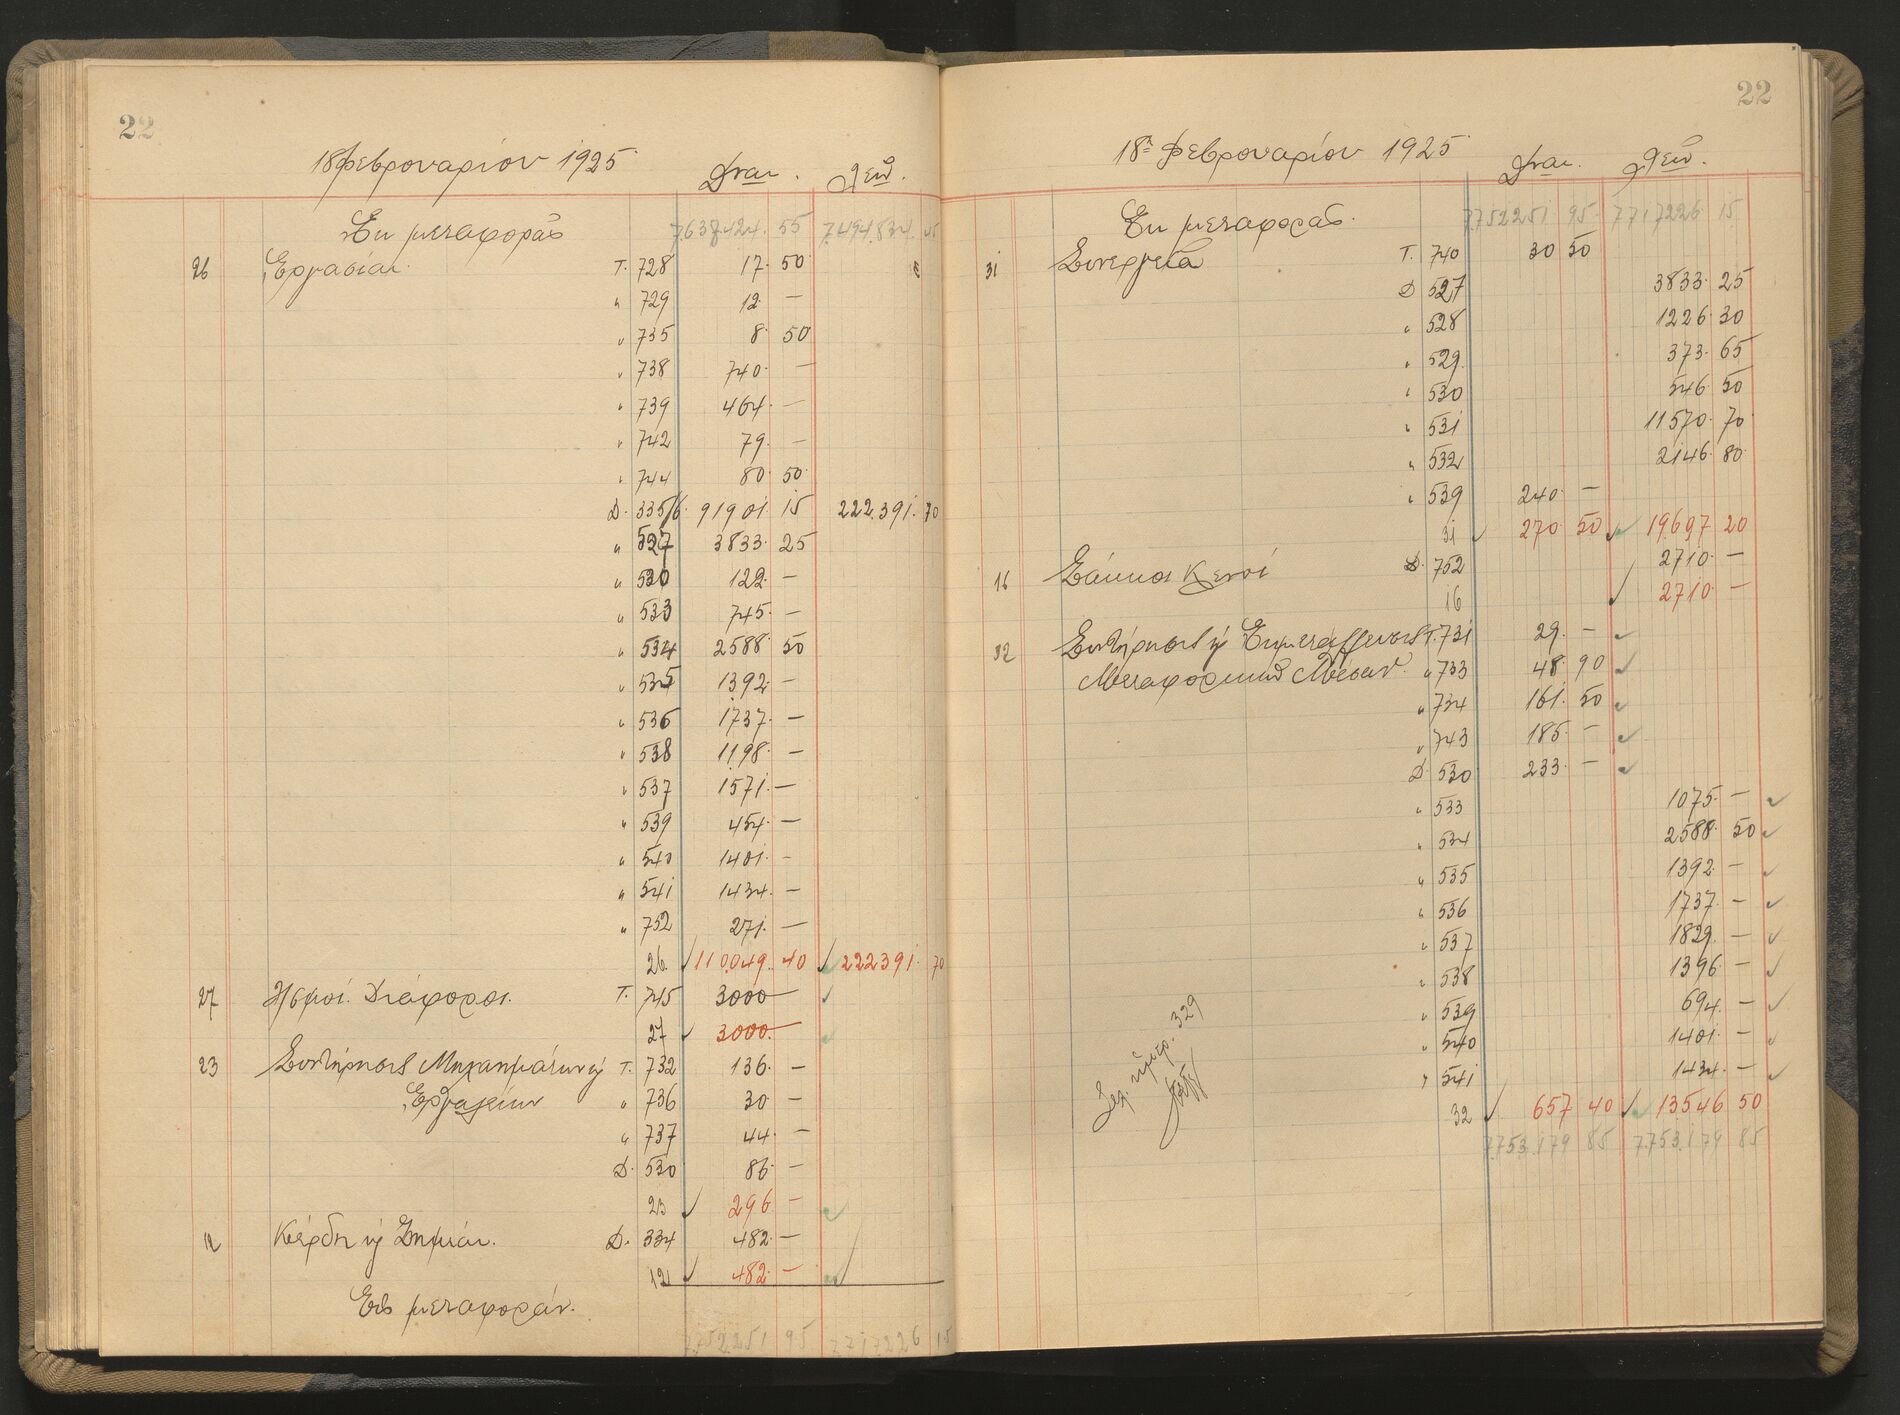 22
18 Φεβρουαρίου 1925
Δναι. Λειῶ.
Ἐκ μεταφορᾶς 7.638.424. 55 7.494.834. 45
26 Ἐργασίαι. Τ. 728 17. 50
" 729 12. —
" 735 8. 50
" 738 740. —
" 739 464. —
" 742 79. —
" 744 80. 50
Δ. 335/6. 91901. 15 222.391. 70
" 527 3833. 25
" 530 122. —
" 533 745. —
" 534 2588. 50
" 535 1392. —
" 536 1737. —
" 538 1198. —
" 537 1571. —
" 539 454. —
" 540 1401. —
" 541 1434. —
" 752 271. —
26. 110.049. 40 222391. 70
27 Διάφοροι. Τ. 745 3000 —
27 3000. —
23 Συντήρησις Μηχανημάτων κ Τ. 732 136. —
Ἐργαλείων " 736 30. —
" 737 44. —
Δ. 530 86. —
23 296. —
12 Κέρδη κ Ζημίαι. Δ. 334 482. —
12 482. —
Εἰς μεταφοράν.
7.752.251 95 7.717.226 15
22
18ῃ Φεβρουαρίου 1925
Δναι. Λειῶ.
Ἐκ μεταφορᾶς. 7.752.251. 95. 7.717.226 15
31 Συνεργεῖα Τ. 740 30 50
Δ 527 3833. 25
" 528 1226. 30
" 529 373. 65
" 530 546. 50
" 531 11570. 70
" 532 2146. 80
" 539 240. —
31 270. 50 19.697. 20
16 Σάκκοι Κενοί Δ. 752 2710. —
16 2710. —
32 Συντήρησις κ Ἐκμετάλλευσις Τ. 731 29. —
Μεταφορικῶν Μέσων. " 733 48. 90
" 734 161. 50
" 743 185. —
Δ. 530 233. —
" 533 1075. —
" 534 2588. 50
" 535 1392. —
" 536 1737. —
" 537 1829. —
" 538 1396. —
" 539 694. —
" 540 1401. —
" 541 1434. —
32 657 40 13546 50
7.753.179 85 7.753.179 85
ἡμερ. 329